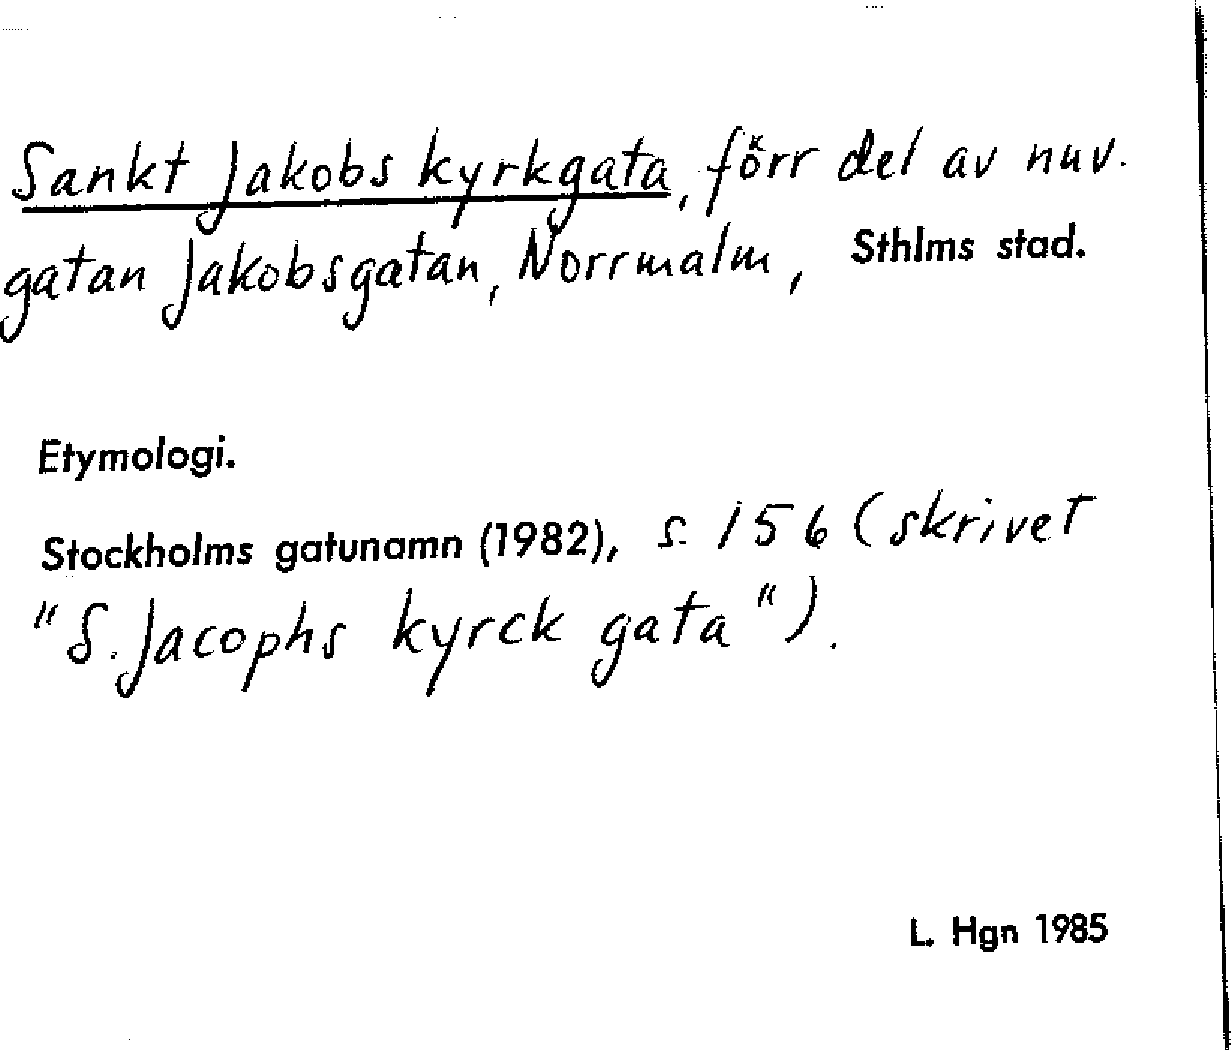 Sankt Jakobs kyrkgata, förr del av nuv.
gatan Jakobsgatan, Norrmalm, Sthlms stad.
Etymologi.
Stockholms gatunamn (1982), s. 156 (skrivet
"S. Jacophs kyrck gata").
L. Hgn 1985